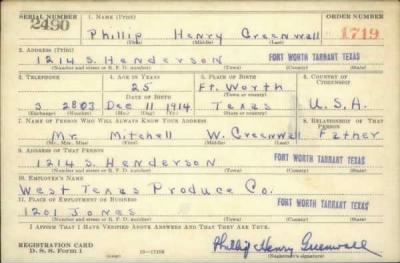 SERIAL NUMBER 1. NAME (Print) ORDER NUMBER
2490 Phillip Henry Greenwall 1719
(First) (Middle) (Last)
2. ADDRESS (Print)
1214 S. Henderson FORT WORTH TARRANT TEXAS
(Number and street or R. F. D. number) (Town) (County) (State)
3. TELEPHONE 4. AGE IN YEARS 5. PLACE OF BIRTH 6. COUNTRY OF CITIZENSHIP
25 Ft. Worth
DATE OF BIRTH (Town or county)
3 2803 Dec 11 1914 Texas U.S.A.
(Mo.) (Day) (Yr.) (State or country)
7. NAME OF PERSON WHO WILL ALWAYS KNOW YOUR ADDRESS 8. RELATIONSHIP OF THAT PERSON
Mr. Mitchell W. Greenwall Father
(Mr., Mrs., Miss) (First) (Middle) (Last)
9. ADDRESS OF THAT PERSON
1214 S. Henderson FORT WORTH TARRANT TEXAS
(Number and street or R. F. D. number) (Town) (County) (State)
10. EMPLOYER'S NAME
West Texas Produce Co.
11. PLACE OF EMPLOYMENT OR BUSINESS
1201 Jones FORT WORTH TARRANT TEXAS
(Number and street or R. F. D. number) (Town) (County) (State)
I AFFIRM THAT I HAVE VERIFIED ABOVE ANSWERS AND THAT THEY ARE TRUE.
REGISTRATION CARD
D. S. S. Form 1 Phillip Henry Greenwall
(Registrant's signature)